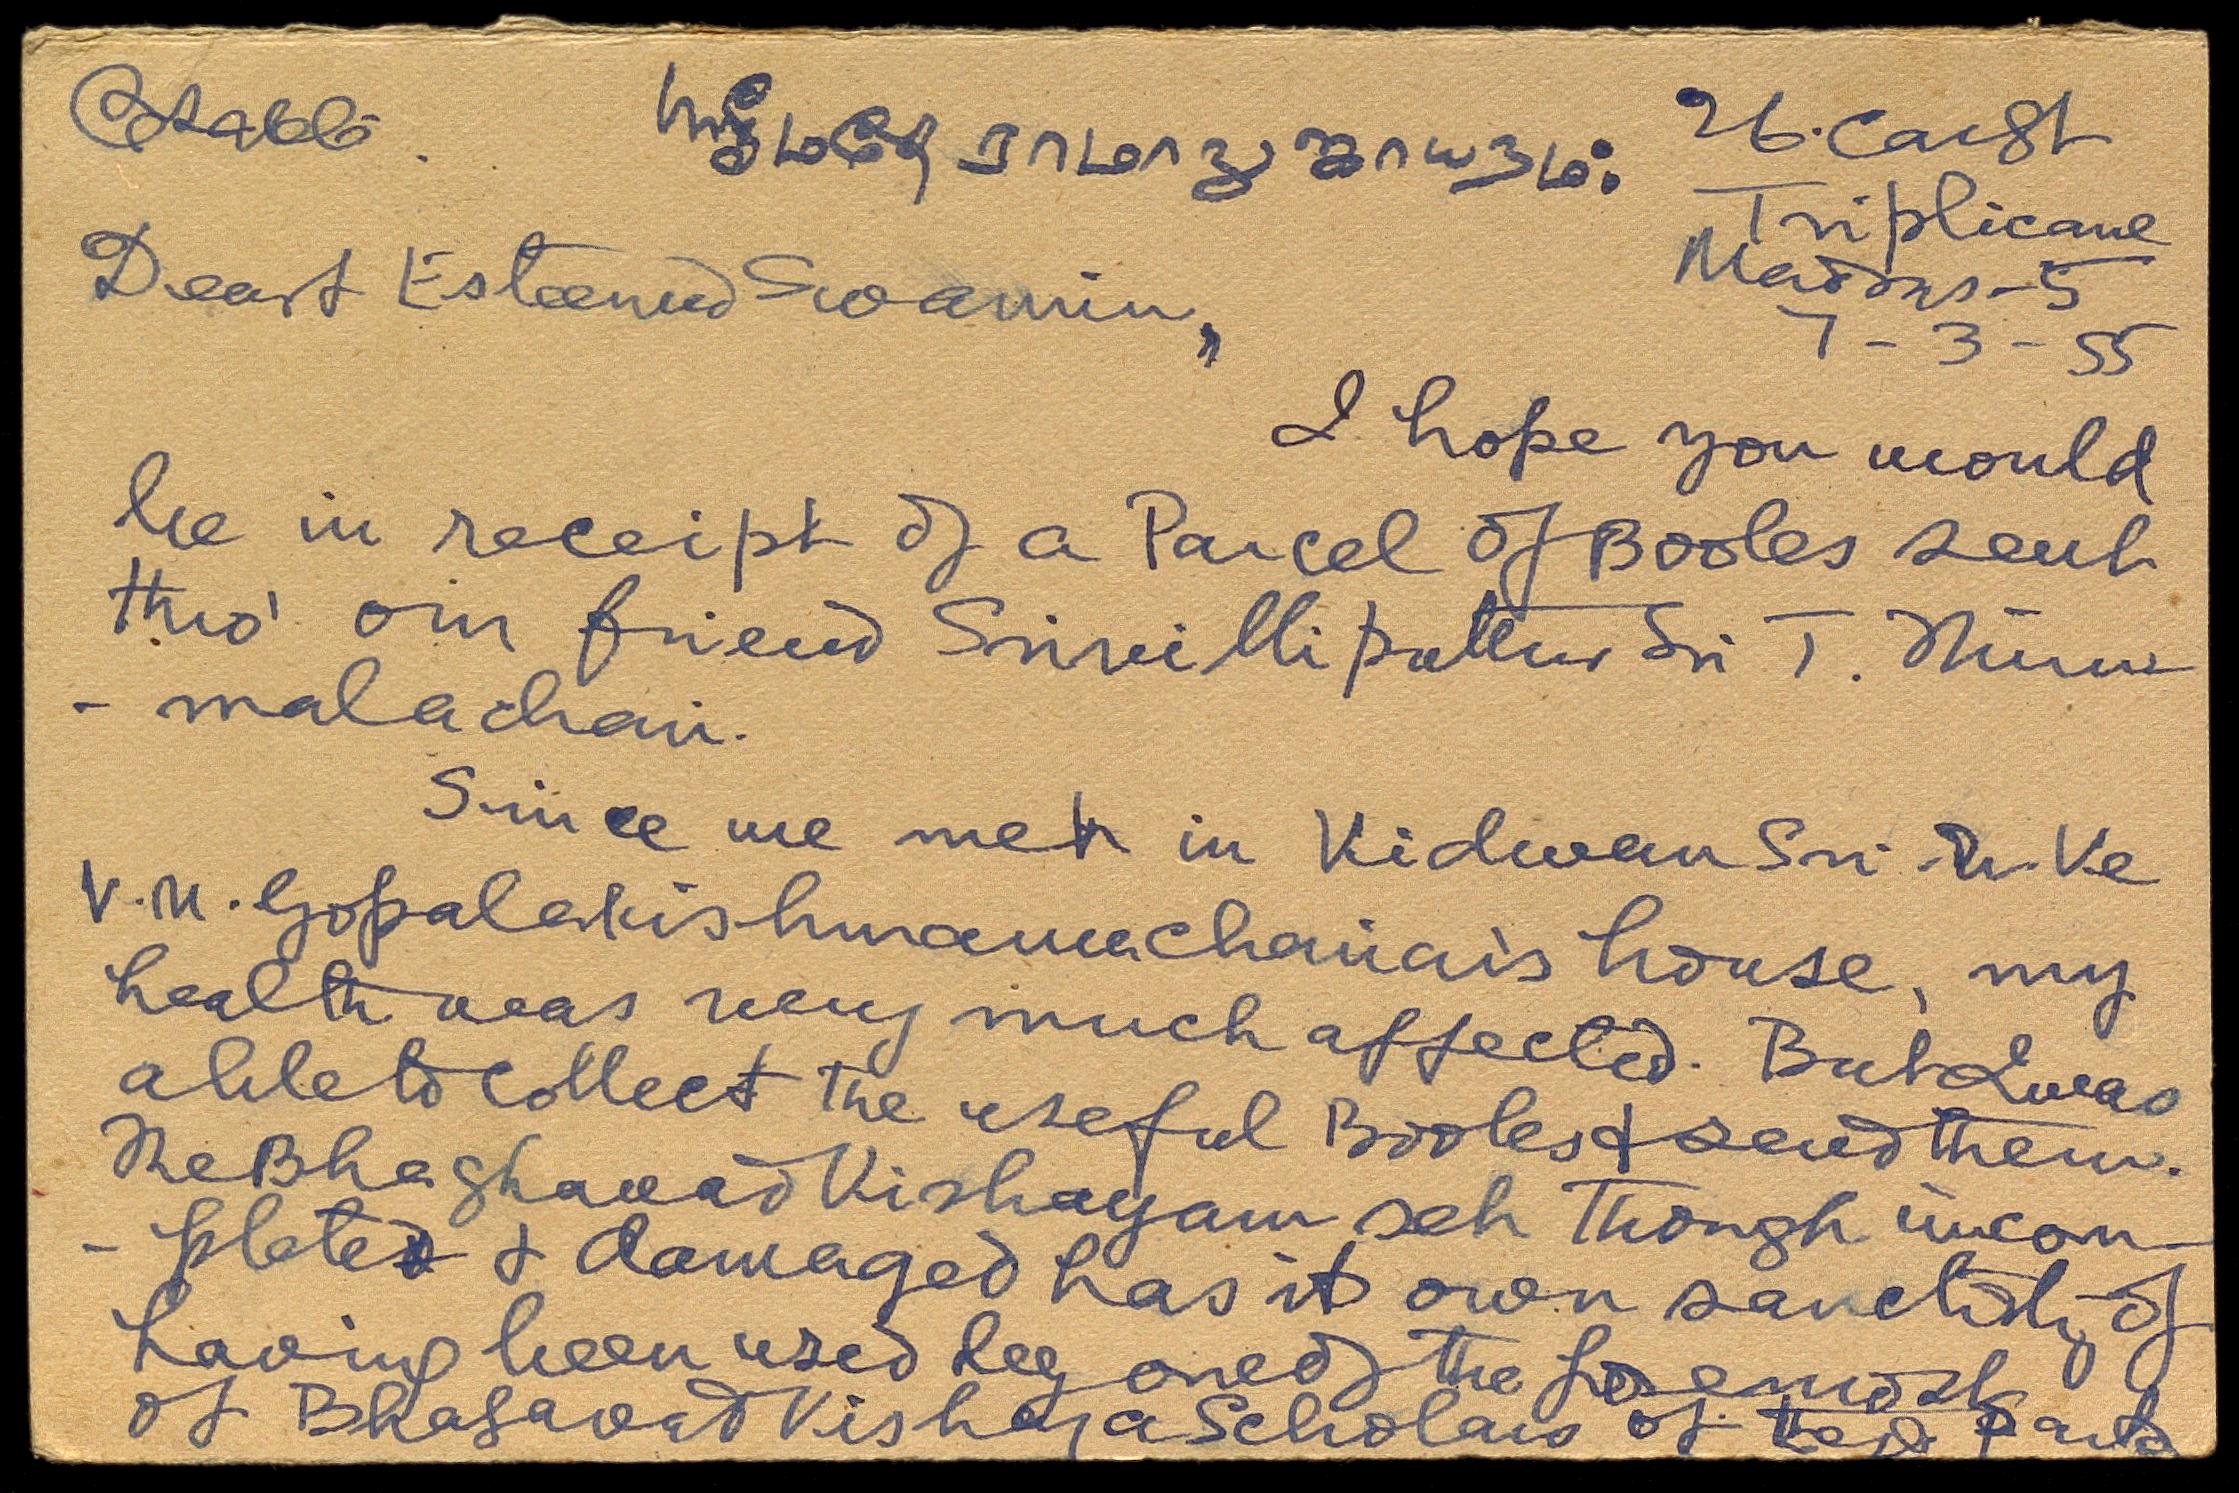 26. Car St
Triplicane
Madras-5
7-3-55
Dearest Esteemed Swamin,
I hope you would
be in receipt of a Parcel of Books sent
thro' our friend Srivilliputtur Sri T. Thiru
- malachari.
Since we met in Vidwan Sri. U. Ve
V.N. Gopalakrishnamachariar's house, my
health was very much affected. But I was
able to collect the useful Books & send them.
The Bhaghavad Vishayam set though incom-
- pleted & damaged has its own sanctity of
having been used by one of the foremost
of Bhagavad Vishaya Scholars of the Past